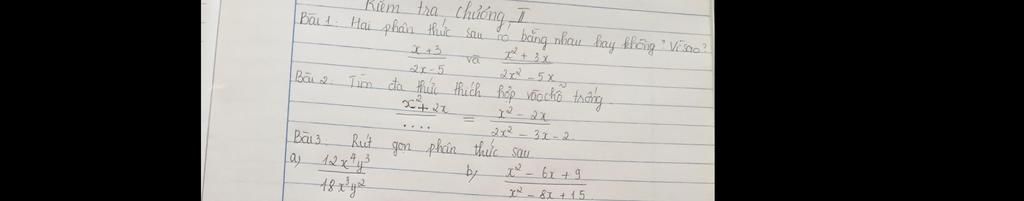 Kiểm tra chương II
Bài 1. Hai phân thức sau có bằng nhau hay không? Vì sao?
x+3 / 2x-5 và x² + 3x / 2x² - 5x
Bài 2. Tìm đa thức thích hợp vào chỗ trống.
x² + 2x / .... = x² - 2x / 2x² - 3x - 2
Bài 3. Rút gọn phân thức sau
a) 12x⁴y³ / 18x³y² b) x² - 6x + 9 / x² - 8x + 15